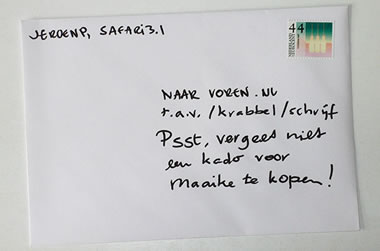 JEROENP, SAFARI 3.1
44
NAAR VOREN.NL
t.a.v. /krabbel/schrijf
Psst, vergeet niet
een kado voor
Maaike te kopen!